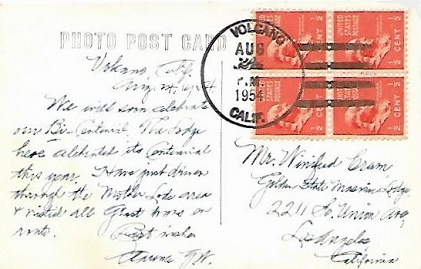 PHOTO POST CARD
VOLCANO
AUG
P.M.
1954
CALIF.
UNITED STATES POSTAGE
1/2 CENT 1/2
UNITED STATES POSTAGE
1/2 CENT 1/2
UNITED STATES POSTAGE
1/2 CENT 1/2
UNITED STATES POSTAGE
1/2 CENT 1/2
Volcano, Calif.
Aug.
We will soon celebrate
our Bi-Centennial. The Lodge
here celebrated its Centennial
this year. Have just driven
through the Mother Lode area
& visited all Ghost towns
route.
Best wishes
Mr. Winifred
Golden State Masonic Lodge
2211 So. Union Ave,
Los Angeles
California